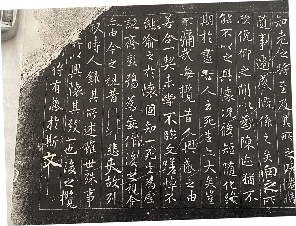 知老之將至及其所之既惓情
隨事遷感慨係之矣向之所
欣俛仰之間以為陳迹猶不
能不以之興懷況脩短隨化終
期於盡古人云死生亦大矣豈
不痛哉每攬昔人興感之由
若合一契未嘗不臨文嗟悼不
能喻之於懷固知一死生為虛
誕齊彭殤為妄作後之視今
由今之視昔悲夫故列
敘時人錄其所述雖世殊事
以興懷其致一也後之攬
將有感於斯文